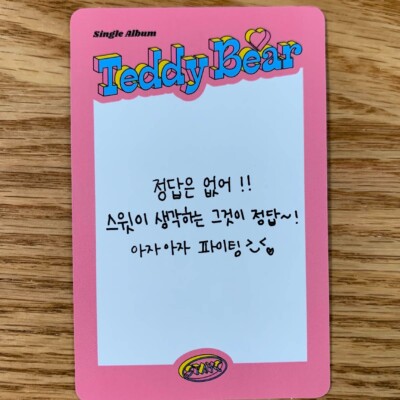 Single Album
Teddy Bear
정답은 없어 !!
스윗이 생각하는 그것이 정답~!
아자아자 파이팅
STAYC